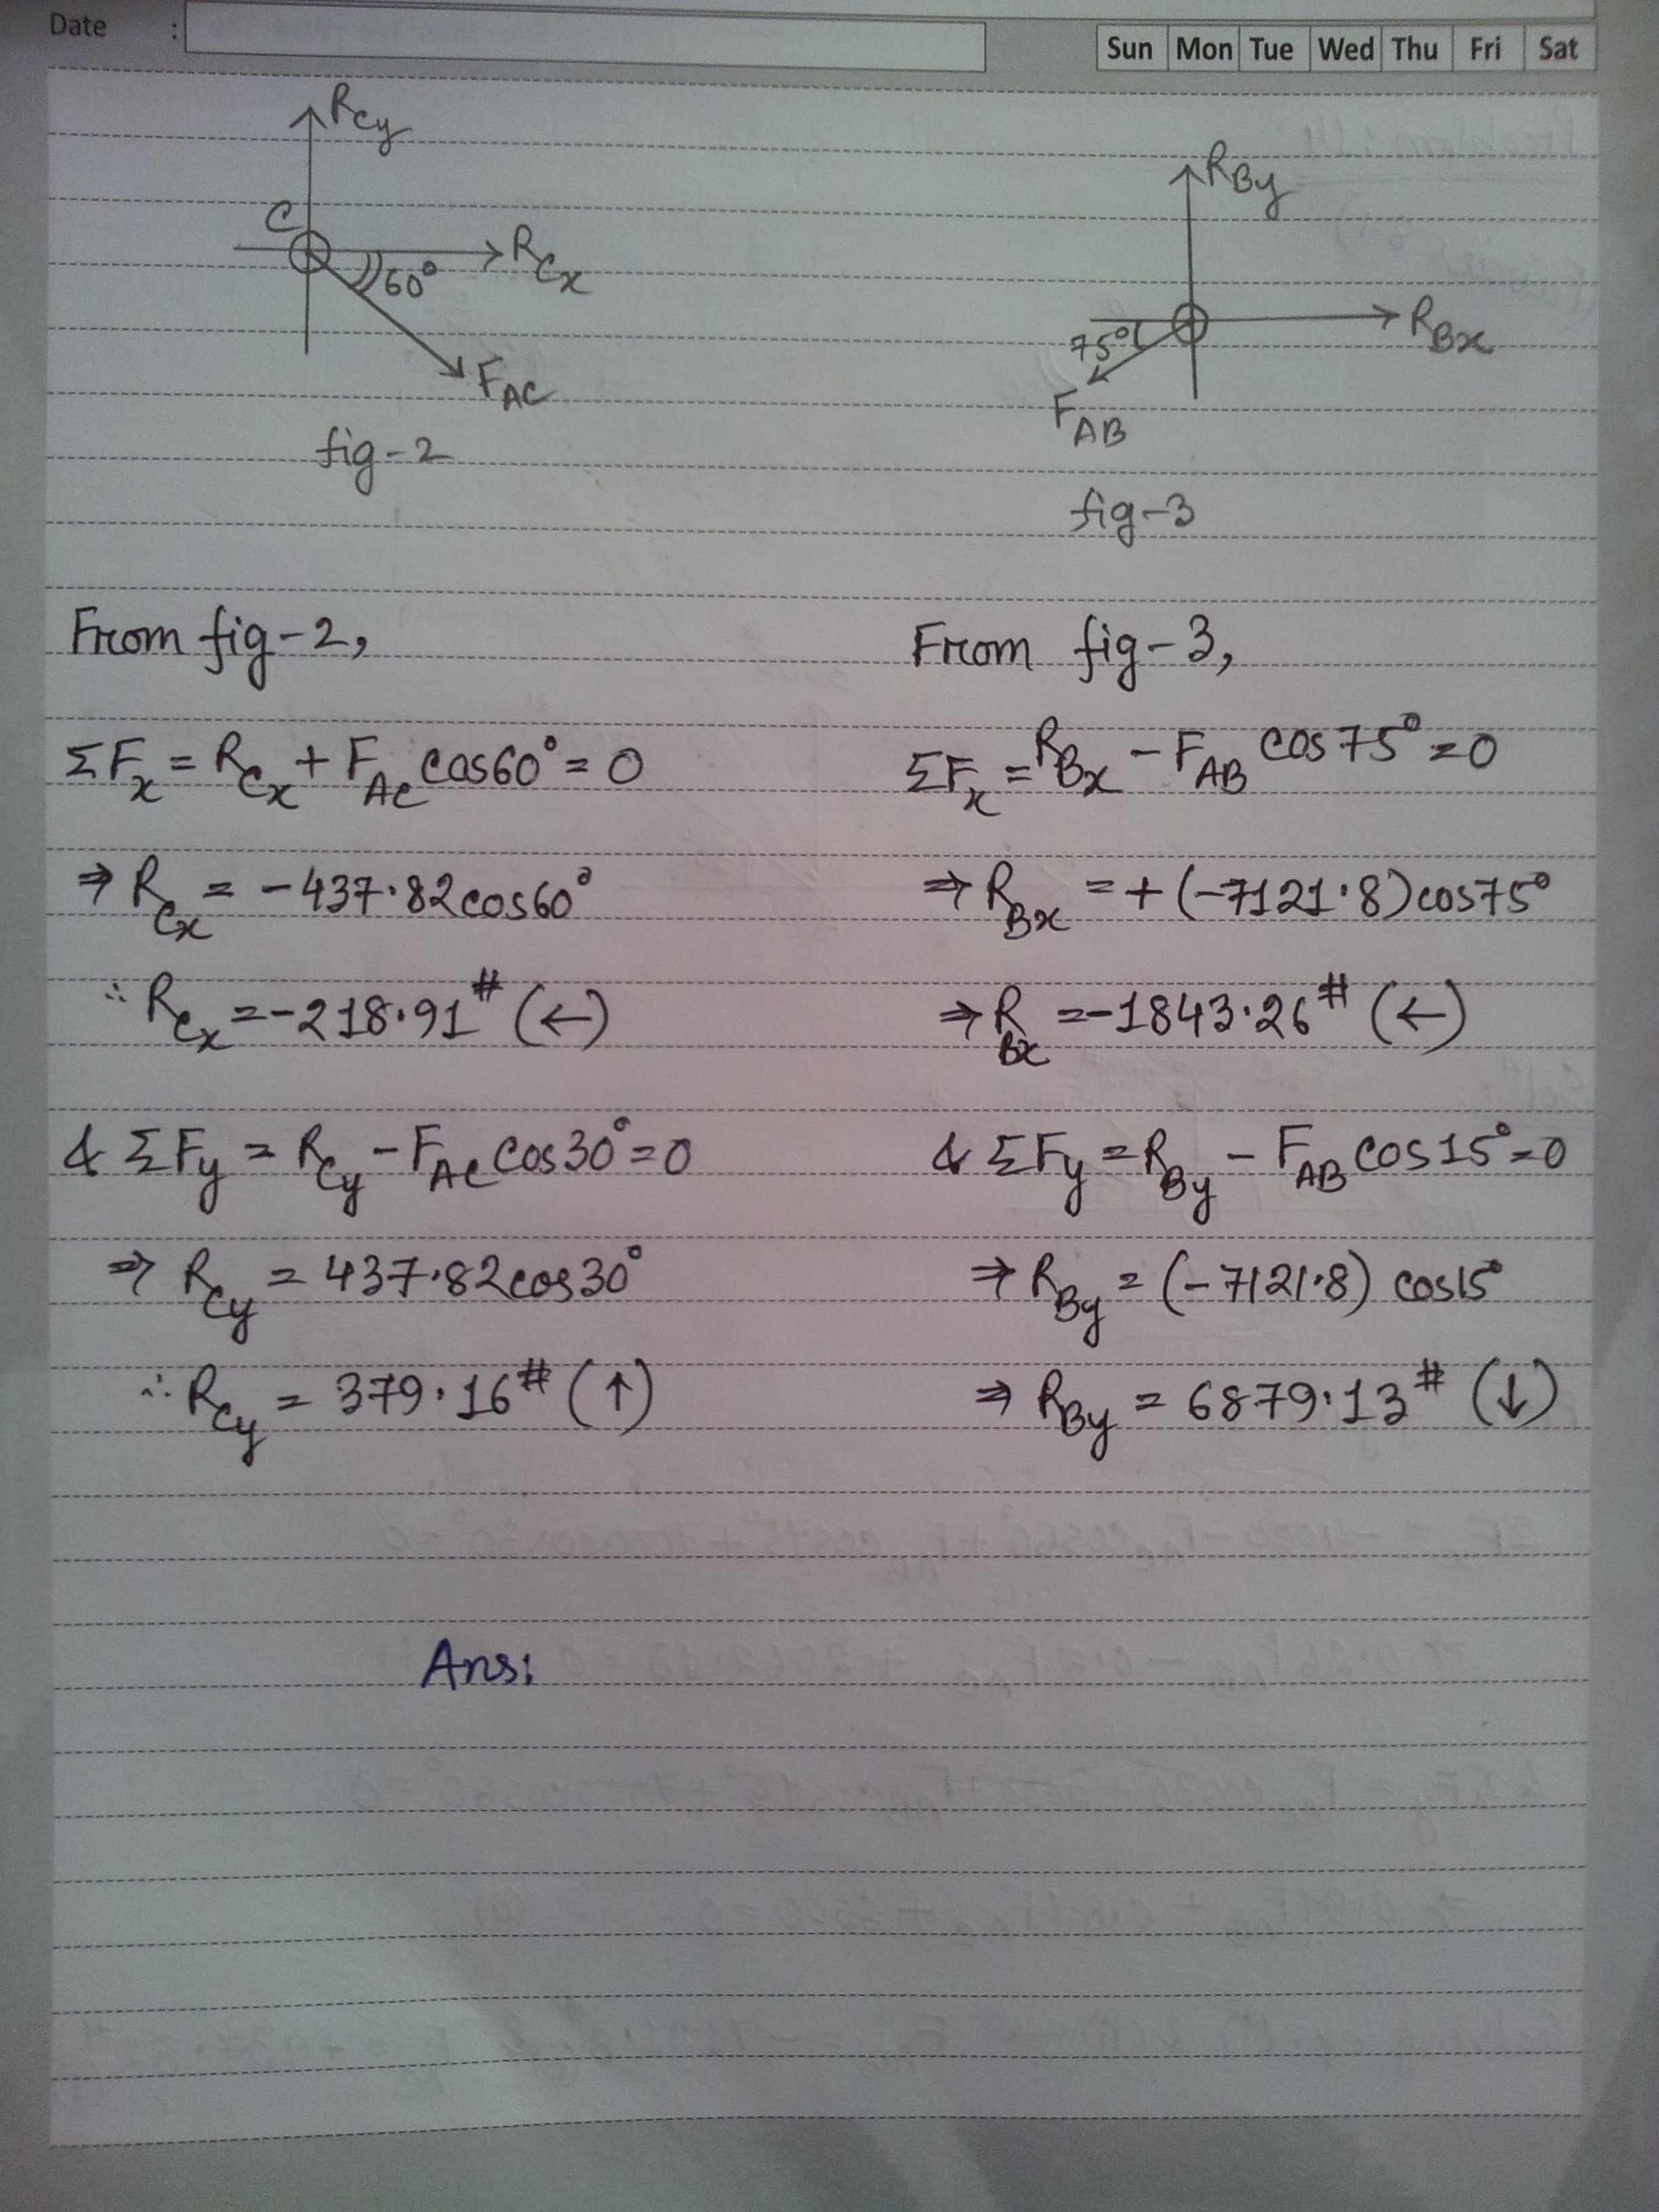 Date :
Sun Mon Tue Wed Thu Fri Sat
R_Cy
C
R_Cx
60°
F_AC
fig-2
R_By
R_Bx
75°
F_AB
fig-3
From fig-2,
ΣF_x = R_Cx + F_AC cos60° = 0
⇒ R_Cx = -437.82cos60°
∴ R_Cx = -218.91# (←)
& ΣF_y = R_Cy - F_AC cos30° = 0
⇒ R_Cy = 437.82cos30°
∴ R_Cy = 379.16# (↑)
From fig-3,
ΣF_x = R_Bx - F_AB cos75° = 0
⇒ R_Bx = +(-7121.8)cos75°
⇒ R_Bx = -1843.26# (←)
& ΣF_y = R_By - F_AB cos15° = 0
⇒ R_By = (-7121.8) cos15°
⇒ R_By = 6879.13# (↓)
Ans: